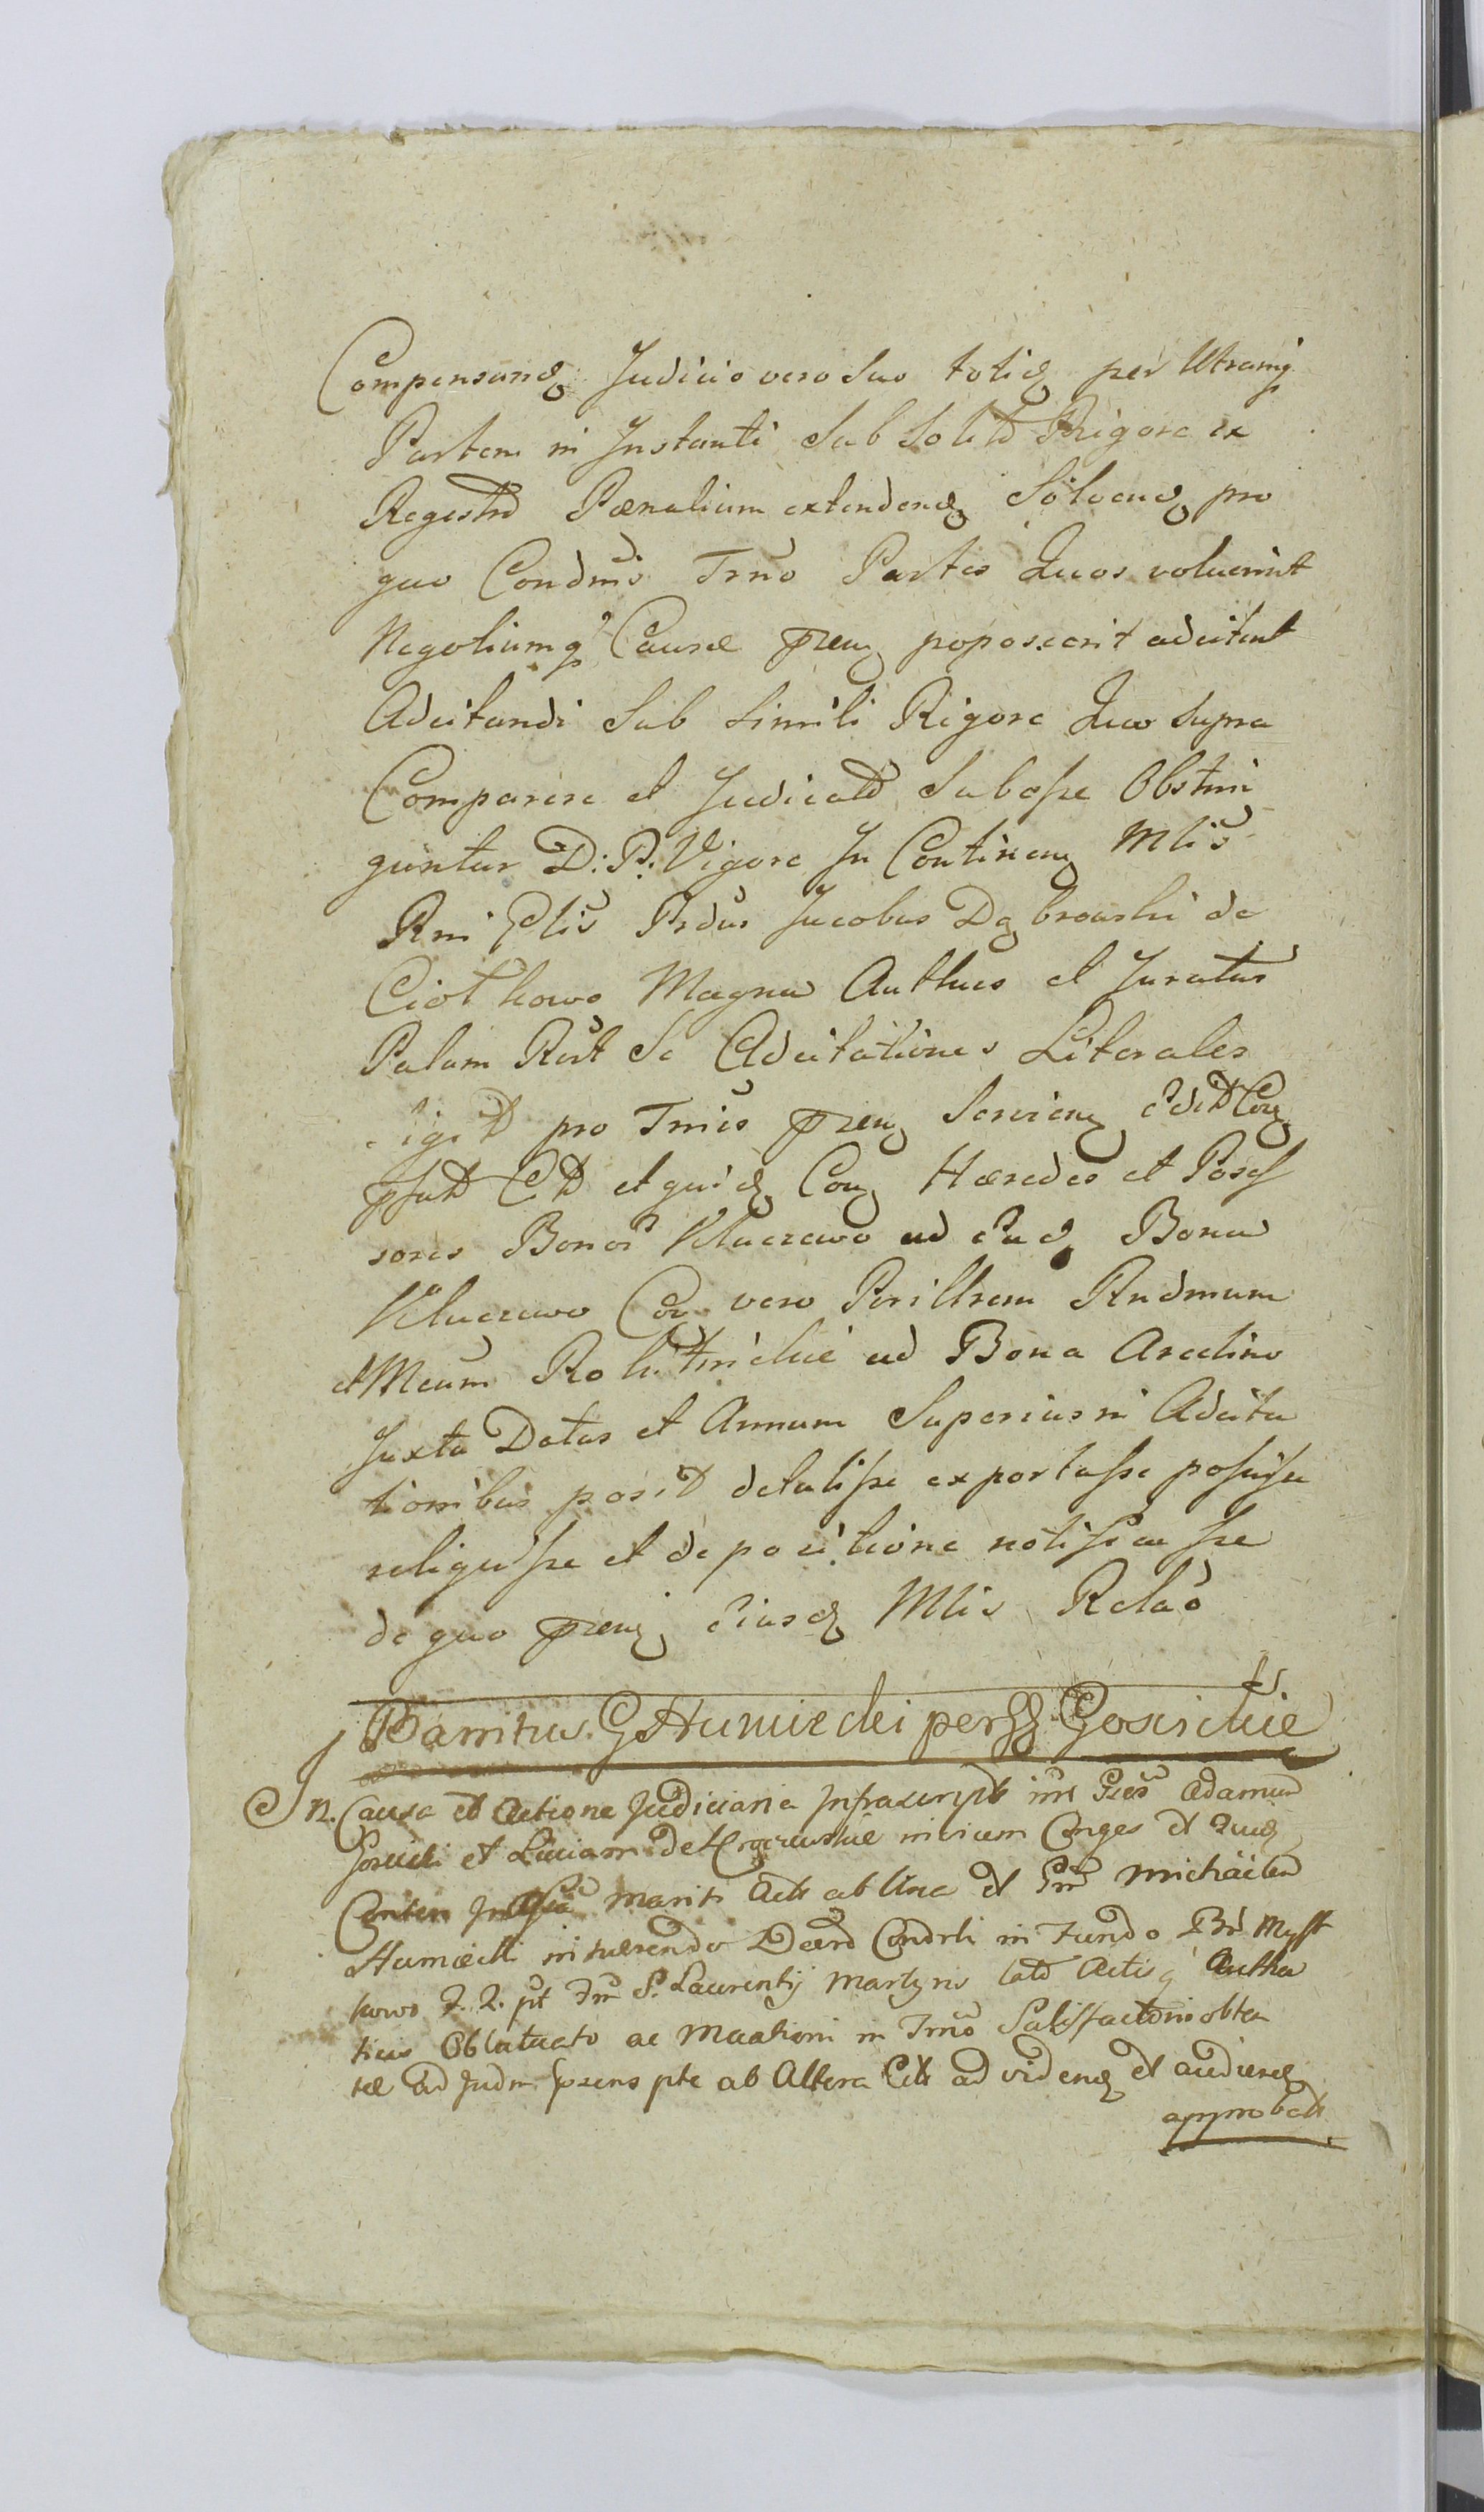 Compensand Judicio vero Suo totid per Utramq
Partem in Instanti Sub Solito Rigore ex
Registro Pœnalium extendend Solvend pro
quo Condmis Trno Partes Quos voluerint
Negotiumq Causæ præn poposcerit adcitent
Adcitandi Sub Simili Rigore Quo Supra
Comparere et Judicato Subesse Obstrin
guntur D: P: Vigore In Continen Mlis
Rni Plis Prdus Jacobus Dąbrowski de
Ciołkowo Magna Authus et Juratus
Palam Rect Se Adcitationes Literales
pro Trnis præn Servien
et quid Con Hæredes et Posses
sores Bonor Kluczewo ad Ead Bona
Kluczewo Con vero Perillrem Rndmum
et Mcum ad Bona Arcelino
Juxta Datas et Annum Superius in Adcita
tionibus posit detulisse exportasse posuisse
reliquisse et de positione notificasse
de quo præn Eiusd Mlis Relaõ
Banitus G Humiecki per GG Gosickie
In Causa et Actione Judiciaria Infrascript int Gsos Adamum
Gosicki et Luciam de invicem Conges et quid
Conten In Assã Mariti Act ab Una et Gm Michaelem
Humiecki inhærendo Decro Condrli in Fundo Br
kowo F. 2. pt Fm S. Laurentij Martyris lato Actisq Authen
ticis Oblatuato ac Moõtioni in Trno Satisfactorio obten
tæ ad Judm præns pte ab Altera Cit ad videnđ et audienđ
approbat